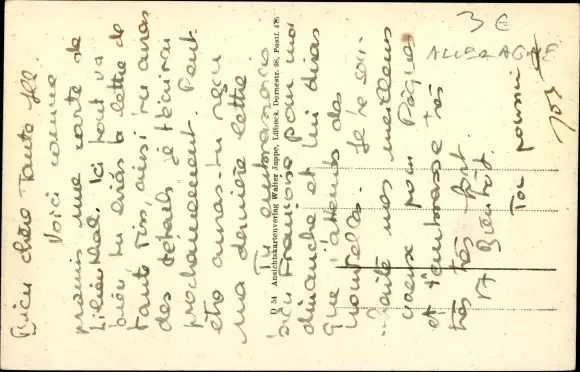 Bien chère Tante Jll.
Voici comme
promis une carte de
Lilienthal. Ici tout va
bien, tu liras la lettre de
tante Tiss, ainsi tu auras
des détails je t'écrirai
prochainement. Peut-
etre auras-tu reçu
ma dernière lettre.
Tu embrasseras
bien Françoise pour moi
dimanche et lui diras
que j'attends des
nouvelles. Je te sou-
haite mes meilleurs
voeux pour Pâques
et t'embrasse très
très très fort.
A Bientôt.
Ton poussin
D 54 Ansichtskartenverlag Walter Jappe, Lübeck, Dornestr. 86, Postf. 476
3 €
ALLEMAGNE